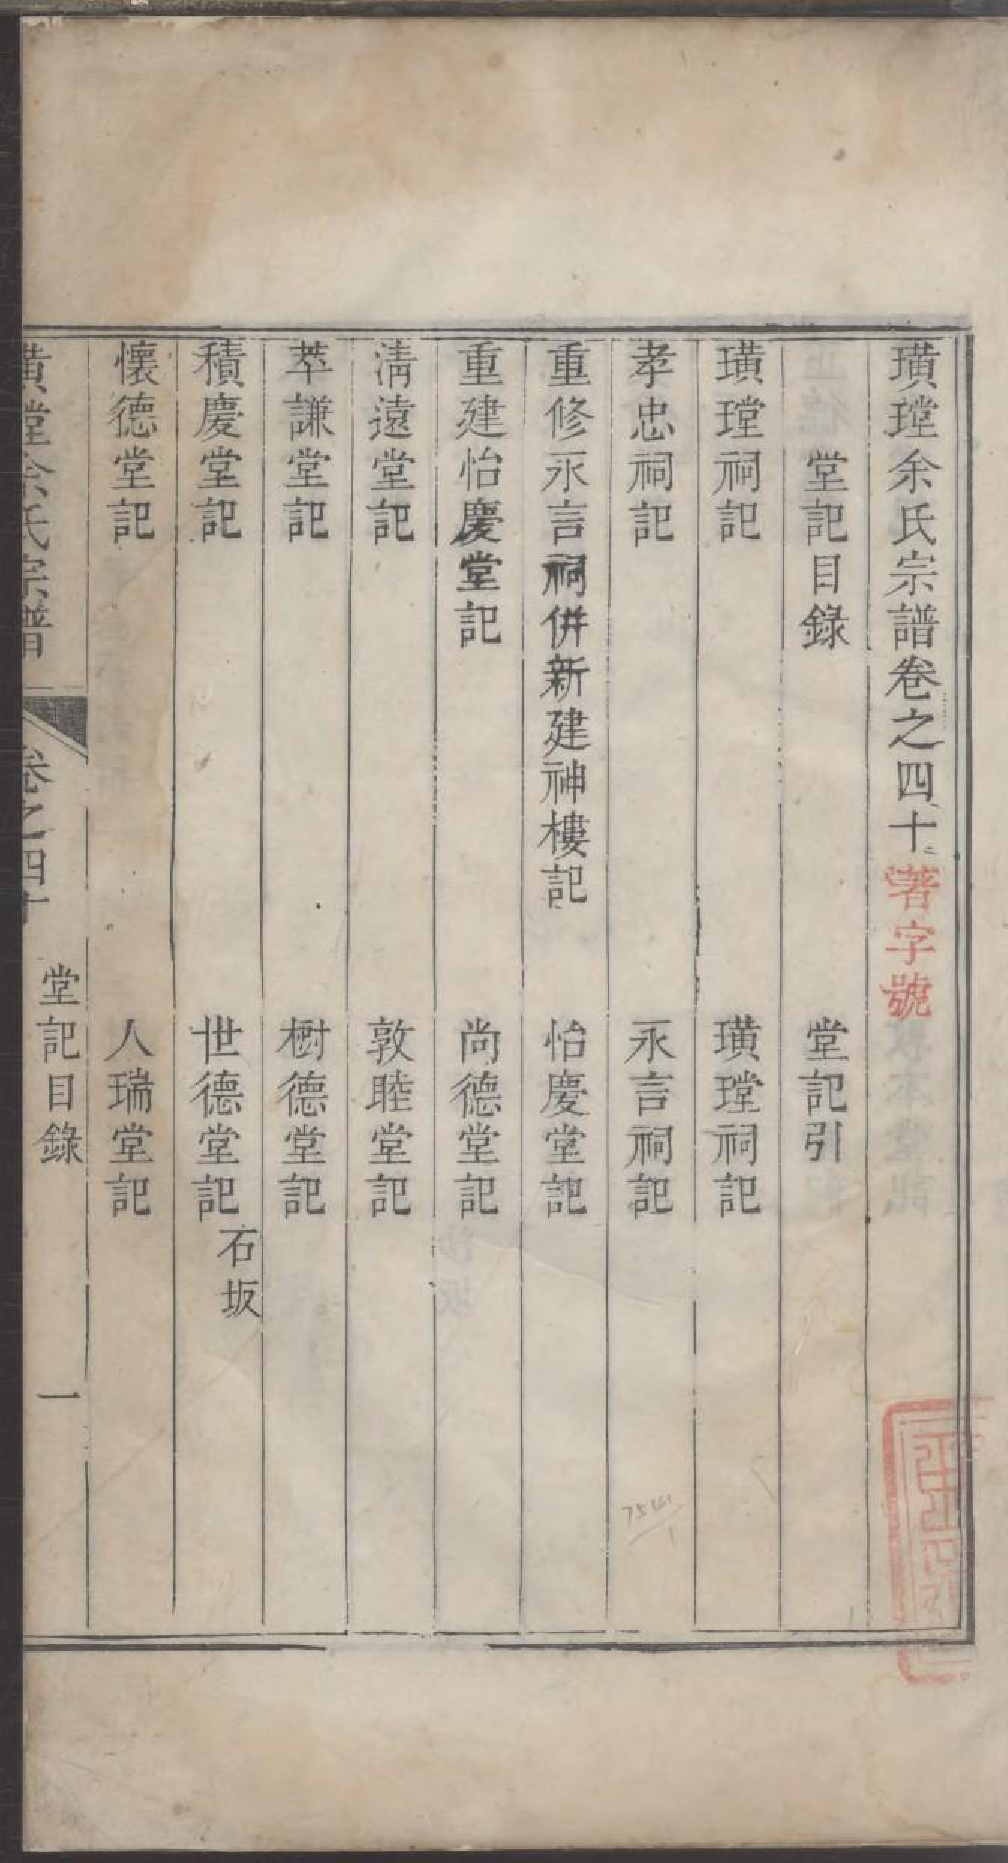 璜瑝余氏宗譜卷之四十 著字號
堂記目錄 堂記引
璜瑝祠記 璜瑝祠記
孝忠祠記 永言祠記
重修永言祠併新建神樓記 怡慶堂記
重建怡慶堂記 尚德堂記
淸遠堂記 敦睦堂記
萃謙堂記 樹德堂記
積慶堂記 世德堂記 石坂
懷德堂記 人瑞堂記
璜瑝余氏宗譜 卷之四十 堂記目錄 一